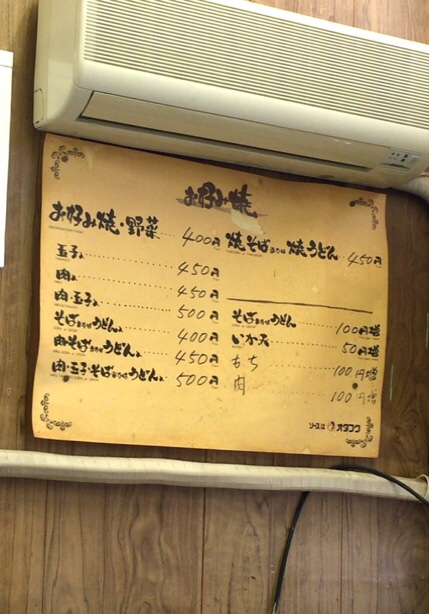 お好み焼
お好み焼・野菜 400円
玉子入 450円
肉入 450円
肉・玉子入 500円
そばまたはうどん入 400円
肉・そばまたはうどん入 450円
肉・玉子・そばまたはうどん入 500円
焼そばまたは焼うどん 450円
そばまたはうどん 100円増
いか天 50円増
もち 100円増
肉 100円増
ソースは オタフク